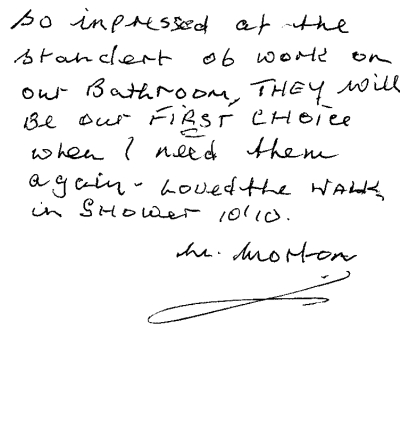 so inpressed at the
standert of work on
our Bathroom, THEY will
BE our FIRST CHOice
when I need them
again - Loved the WALK
in SHOWER 10/10.
M. Morton